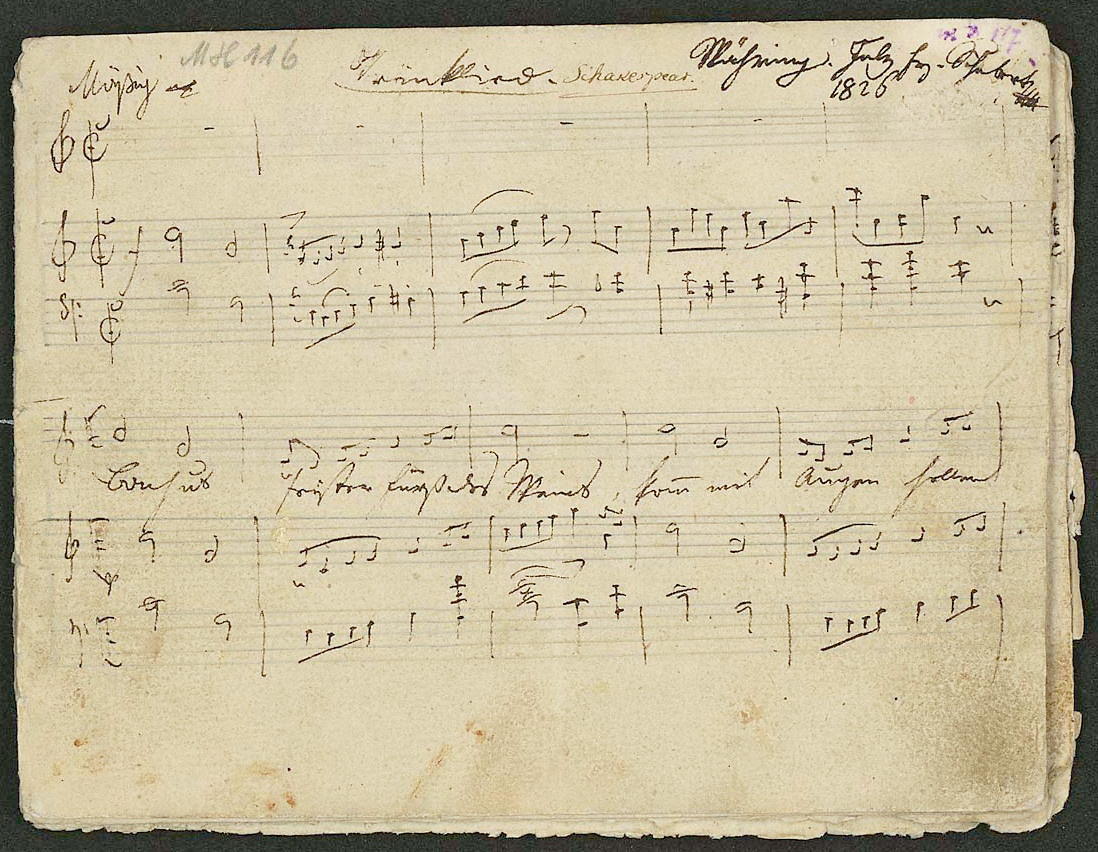 MH 116
Mäßig
Trinklied. Schakespear. Währing. July Frz. Schubert
1826
Bacchus feister Fürst des Weins, komm mit Augen hellen